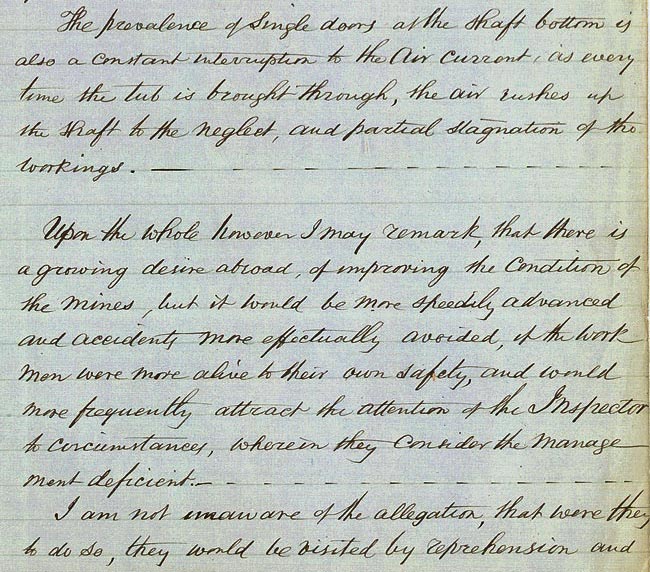 The prevalence of Single doors at the Shaft bottom is
also a constant interruption to the Air current, as every
time the tub is brought through, the air rushes up
the Shaft to the neglect, and partial stagnation of the
workings. —
Upon the whole however I may remark, that there is
a growing desire abroad, of improving the Condition of
the Mines, but it would be more speedily advanced
and accidents more effectually avoided, if the work
men were more alive to their own safety, and would
more frequently attract the attention of the Inspector
to circumstances, wherein they Consider the Manage
ment deficient. —
I am not unaware of the allegation, that were they
to do so, they would be visited by reprehension and